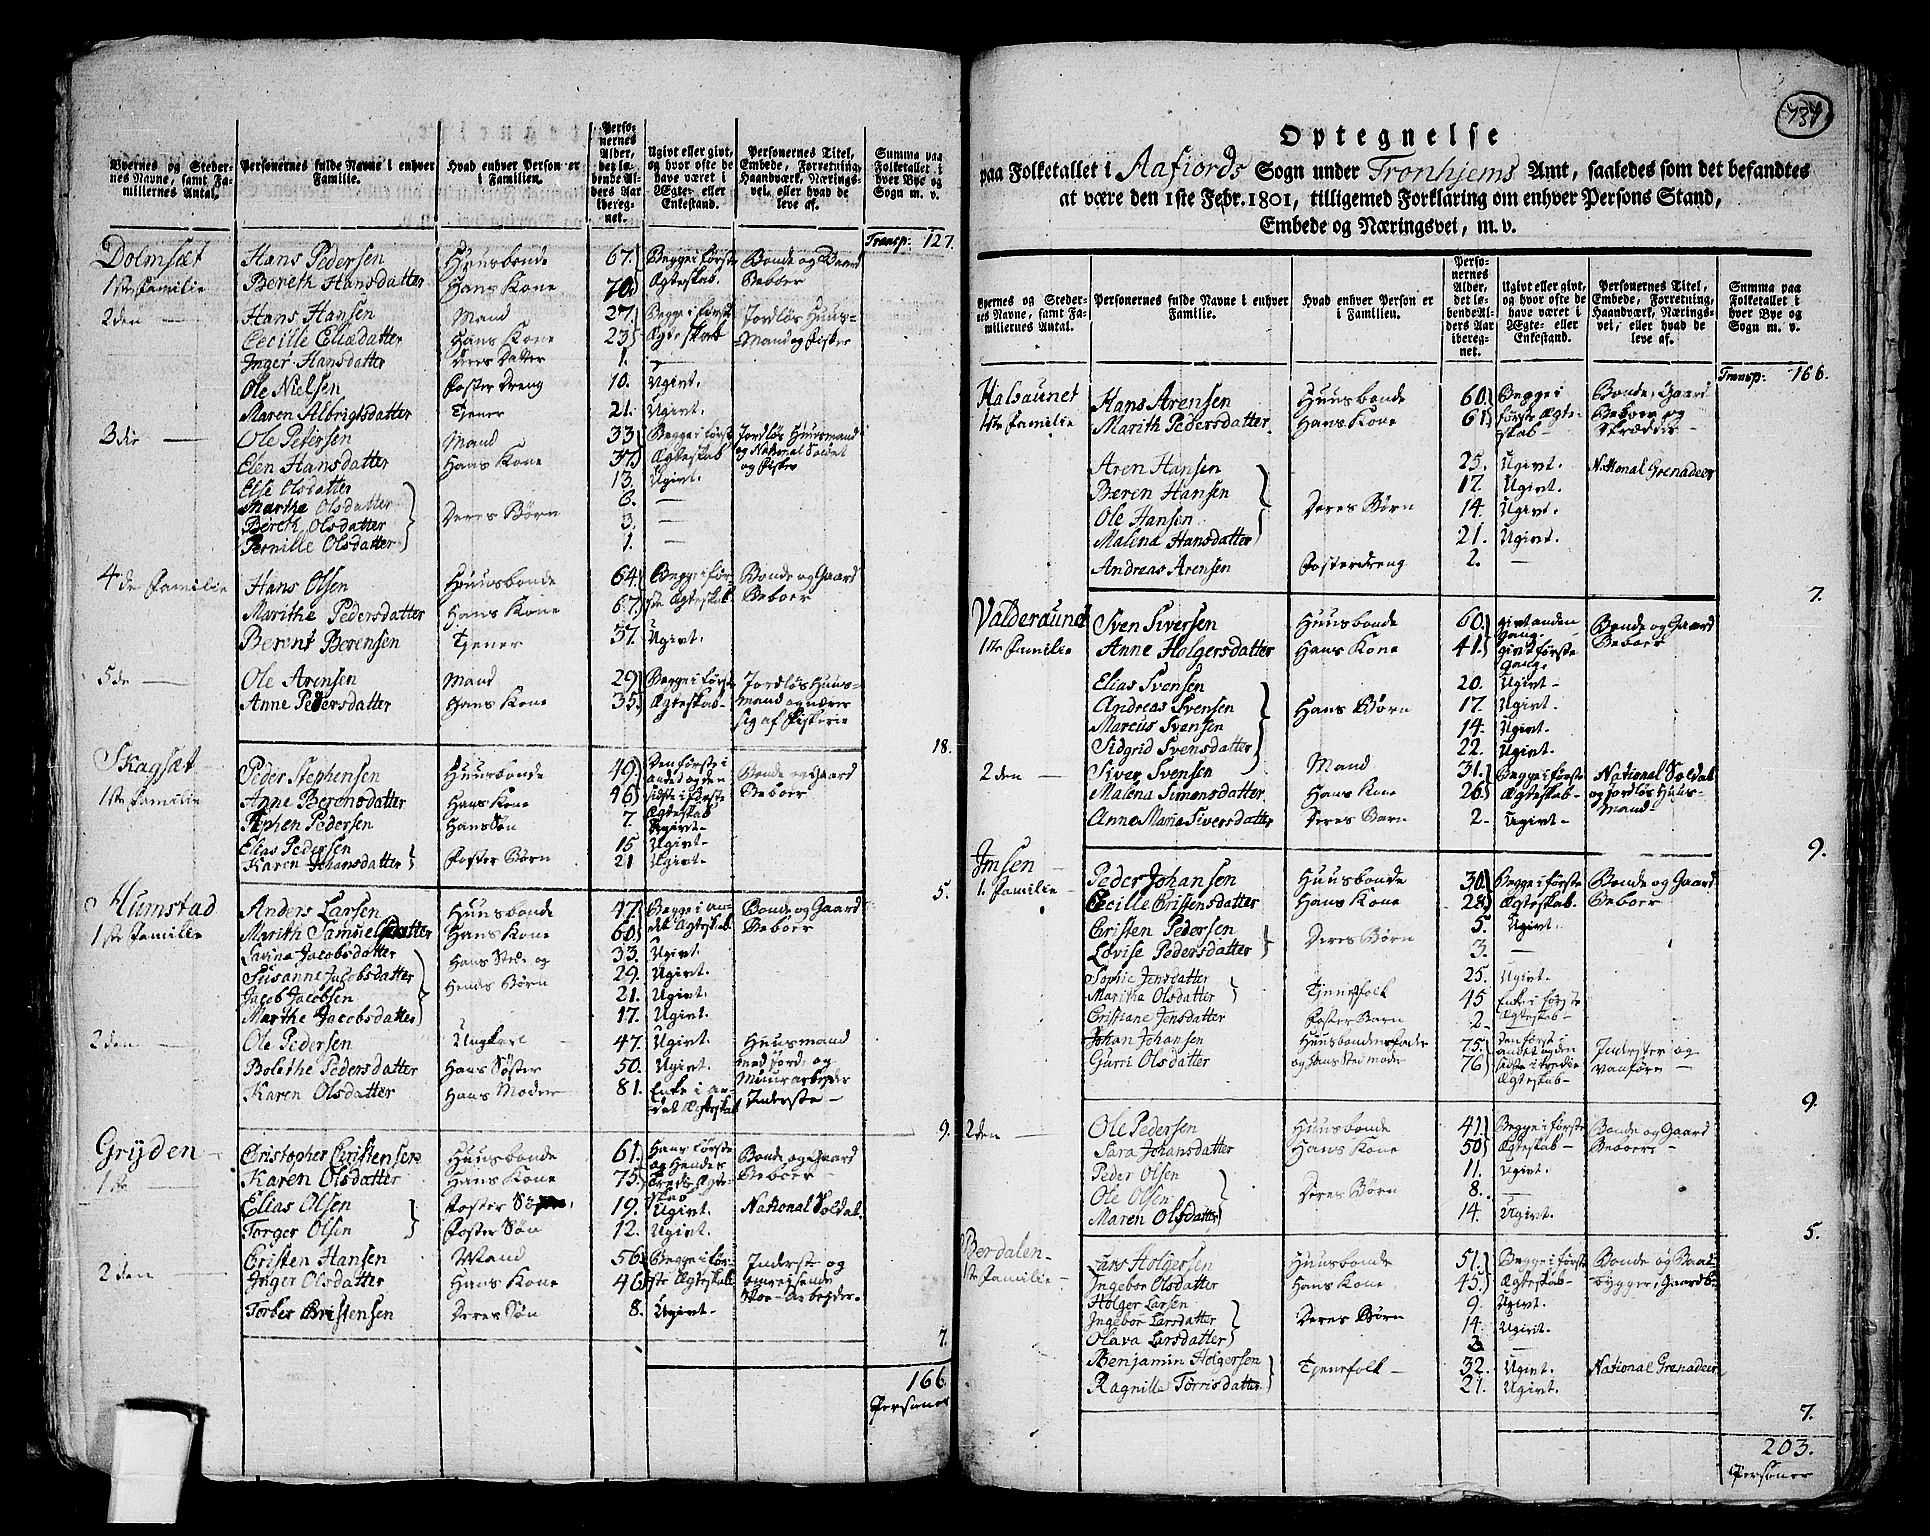 Byernes og Steder-
nes Navne, samt Fa-
miliernes Antal.
Personernes fulde Navne i enhver
Familie.
Hvad enhver Person er
i Familien.
Perso-
nernes
Alder,
det lø-
bende Al-
ders Aar
iberegnet.
Ugivt eller givt,
og hvor ofte de
have været i
Ægte- eller
Enkestand.
Personernes Titel,
Embede, Forretning,
Haandværk, Nærings-
vei, eller hvad de
leve af.
Summa paa
Folketallet i
hver Bye og
Sogn m. v.
Transp: 127.
Dolmsæt Hans Pedersen Huusbonde 67. Begge i første Bonde og Gaard
1ste Familie Bereth Hansdatter Hans Kone 70. Ægteskab. Beboer
2den — Hans Hansen Mand 27. Begge i først Jordløs Huus-
Cecille Eliædatter Hans Kone 23. Ægteskab Mand og Fisker
Inger Hansdatter Deres Datter 1. —
Ole Nielsen Foster Dreng 10. Ugivt.
Maren Albrigtsdatter Tjener 21. Ugivt.
3die — Ole Petersen Mand 33 Begge i først Jordløs Huusmand
Elen Hansdatter Hans Kone 37. Ægteskab og National Soldat
Else Olsdatter 13. Ugivt. og Fisker
Marthe Olsdatter 6. —
Bereth Olsdatter Deres Børn 3. —
Pernille Olsdatter 1. —
4de Familie Hans Olsen Huusbonde 64. Begge i før- Bonde og Gaard
Marithe Pedersdatter Hans Kone 67. ste Ægteskab. Beboer
Berent Berensen Tjener 37. Ugivt.
5de — Ole Arensen Mand 29 Begge i første Jordløs Huus-
Anne Pedersdatter Hans Kone 35. Ægteskab- mand og nærer
sig af Fiskerie
18.
Skagsæt Peder Stephensen Huusbonde 49. Den første i Bonde og Gaard
1ste Familie Anne Berensdatter Hans Kone 46 andet og den Beboer
sidste i første
Stephen Pedersen Hans Søn 7. Ægteskab
Ugivt-
Elias Pedersen 15 Ugivt-
Karen Johansdatter Foster Børn 21 Ugivt-
5.
Humstad Anders Larsen Huusbonde 47. Begge i an- Bonde og Gaard
1ste Familie Marith Samuelsdatter Hans Kone 60. det Ægteskab Beboer
Lavina Jacobsdatter Hans Sted og 33. Ugivt
Susanne Jacobsdatter 29. Ugivt.
Jacob Jacobsen Hendes Børn 21. Ugivt.
Marthe Jacobsdatter 17. Ugivt.
2den — Ole Pedersen Ungkarl 47. Ugivt. Huusmand
Bolethe Pedersdatter Hans Søster 50. Ugivt. med Jord, og
Karen Olsdatter Hans Moder 81. Enke i an- Muurarbejder
det Ægteskab Inderste —
9.
Gryden — Cristopher Cristensen Huusbonde 61. Hans første Bonde og Gaard
1ste — Karen Olsdatter Hans Kone 75. og Hendes Beboer
tredie Ægte-
skab
Elias Olsen Foster Søn 19. Ugivt. National Soldat.
Torger Olsen Foster Søn 12. Ugivt.
2den — Cristen Hansen Mand 56. Begge i før- Inderste og
Inger Olsdatter Hans Kone 46 ste Ægteskab omreisende
Skoe-Arbejder.
Torber Cristensen Deres Søn 8. Ugivt.
7.
166
Personer
134
Optegnelse
paa Folketallet i Aafiords Sogn under Tronhjems Amt, saaledes som det befandtes
at være den 1ste Febr. 1801, tilligemed Forklaring om enhver Persons Stand,
Embede og Næringsvei, m. v.
Byernes og Steder-
nes Navne, samt Fa-
miliernes Antal.
Personernes fulde Navne i enhver
Familie.
Hvad enhver Person er
i Familien.
Perso-
nernes
Alder,
det lø-
bende Al-
ders Aar
iberegnet.
Ugivt eller givt,
og hvor ofte de
have været i
Ægte- eller
Enkestand.
Personernes Titel,
Embede, Forretning,
Haandværk, Nærings-
vei, eller hvad de
leve af.
Summa paa
Folketallet i
hver Bye og
Sogn m. v.
Transp: 166.
Halsaunet Hans Arensen Huusbonde 60. Begge i Bonde, Gaard
1ste Familie Marith Pedersdatter Hans Kone 61. første Ægte- Beboer og
skab- Skrædder —
Aren Hansen 25. Ugivt. National Grenadeer
Beren Hansen 17. Ugivt.
Ole Hansen Deres Børn 14. Ugivt.
Malena Hansdatter 21. Ugivt.
Andreas Arensen Fosterdreng 2. —
7.
Valderaunet Sven Siversen Huusbonde 60. givt anden Bonde og Gaard
1ste Familie Anne Holgersdatter Hans Kone 41. Gang. Beboer
givt første
Gang.
Elias Svensen 20. Ugivt-
Andreas Svensen Hans Børn 17. Ugivt.
Marcus Svensen 14. Ugivt.
Sidgrid Svensdatter 22. Ugivt-
2den — Siver Svensen Mand 31. Begge i første National Soldat
Malena Simonsdatter Hans Kone 26. Ægteskab- og Jordløs Huus-
Anne Maria Siversdatter Deres Barn 2. Ugivt- Mand
9.
Imsen Peder Johansen Huusbonde 30. Begge i første Bonde og Gaard
1. Familie Cecille Cristensdatter Hans Kone 28. Ægteskab. Beboer
Cristen Pedersen Deres Børn 5. Ugivt.
Lovise Pedersdatter 3. —
Sophie Jensdatter 25. Ugivt.
Maritha Olsdatter Tjenestfolk 45 Enke i første
Cristiane Jensdatter Foster Barn 2 Ægteskab-
Johan Johansen Huusbondens fader 75. den først i Inderster og
Gurri Olsdatter og Hans Stedmoder 76 andet og den vanføre —
sidste i tredie
Ægteskab-
9.
2den — Ole Pedersen Huusbonde 41. Begge i første Bonde og Gaard
Sara Johansdatter Hans Kone 50 Ægteskab- Beboere-
Peder Olsen 11. Ugivt.
Ole Olsen Deres Børn 8. —
Maren Olsdatter 14. Ugivt.
5.
Berdalen- Lars Holgersen Huusbonde 51. Begge i første Bonde og Baad
1ste Familie — Ingebor Olsdatter Hans Kone 45. Ægteskab- bygger, Gaardb-
Holger Larsen 9. Ugivt.
Ingebor Larsdatter Deres Børn 14. Ugivt.
Olava Larsdatter 3 —
Benjamin Holgersen Tjenestfolk — 32. Ugivt. National Grenadeer
Ragnille Torrisdatter 27. Ugivt.
7.
203.
Personer